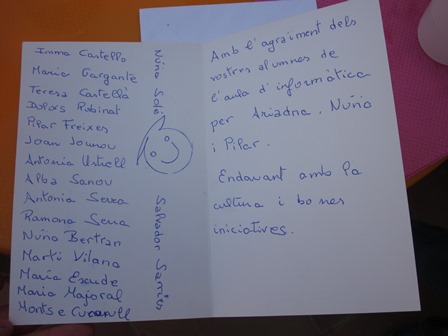 Imma Castelló
Maria Gargantè
Teresa Castellà
Dolors Pubinat
Pilar Freixes
Joan Jounou
Antonia Ustrell
Alba Sanou
Antonia Serra
Ramona Serra
Núria Bertran
Martí Vilana
Maria Escude
Maria Majoral
Montse Cucurull
Núria Solé
Salvador Sarrits
Amb l'agraiment dels
vostres alumnes de
l'aula d'informàtica
per Ariadna, Núria
i Pilar.
Endavant amb la
cultura i bones
iniciatives.